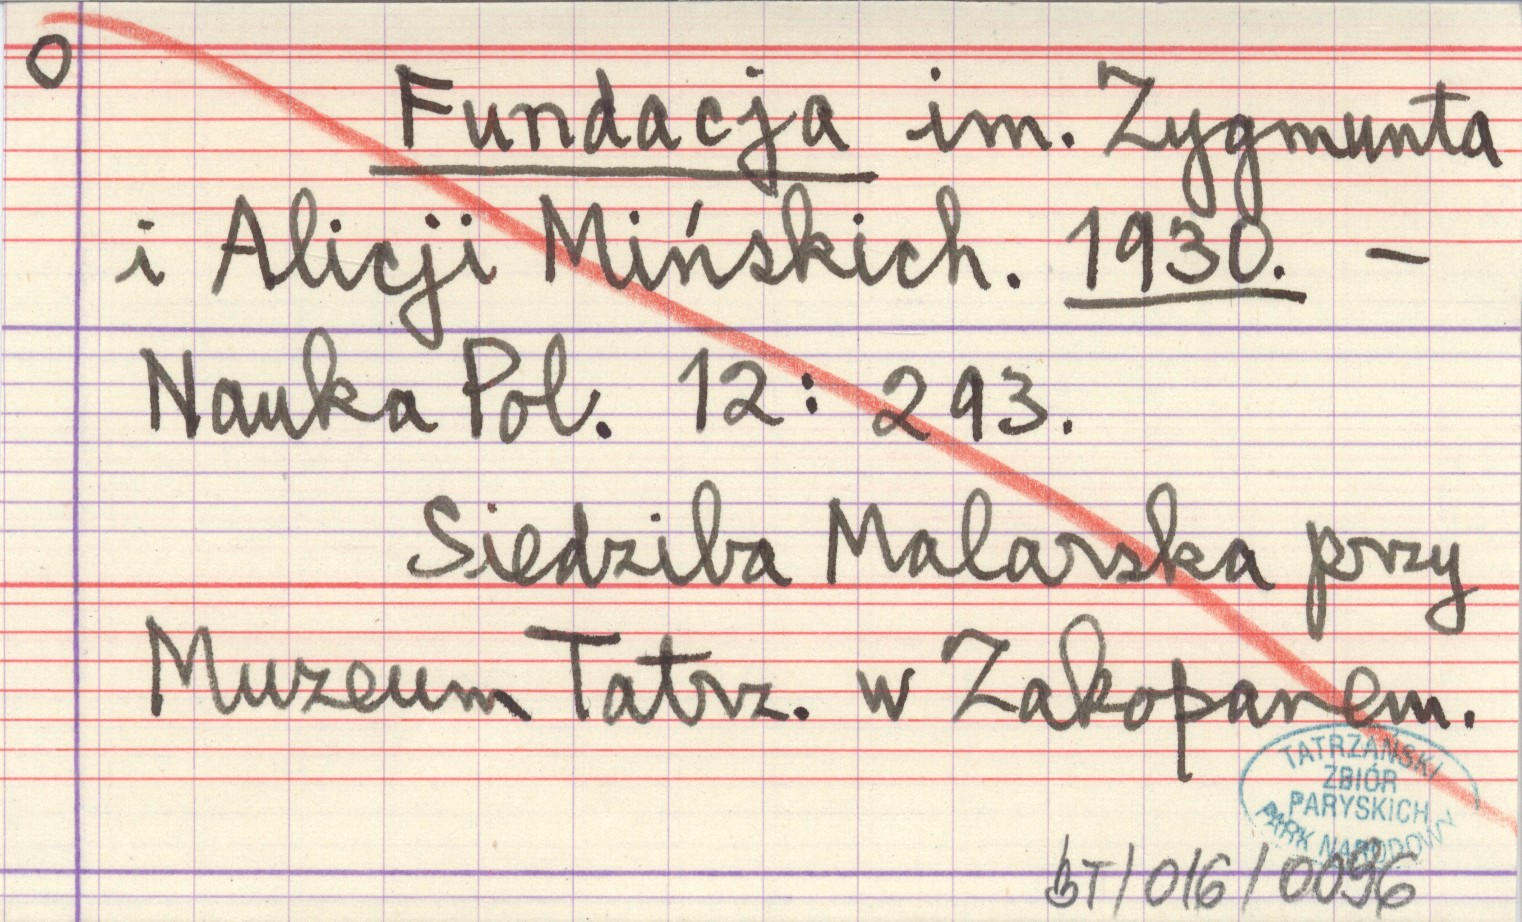 O
Fundacja im. Zygmunta
i Alicji Mińskich. 1930. –
Nauka Pol. 12: 293.
Siedziba Malarska przy
Muzeum Tatrz. w Zakopanem.
TATRZAŃSKI
ZBIÓR
PARYSKICH
PARK NARODOWY
BT/016/0096